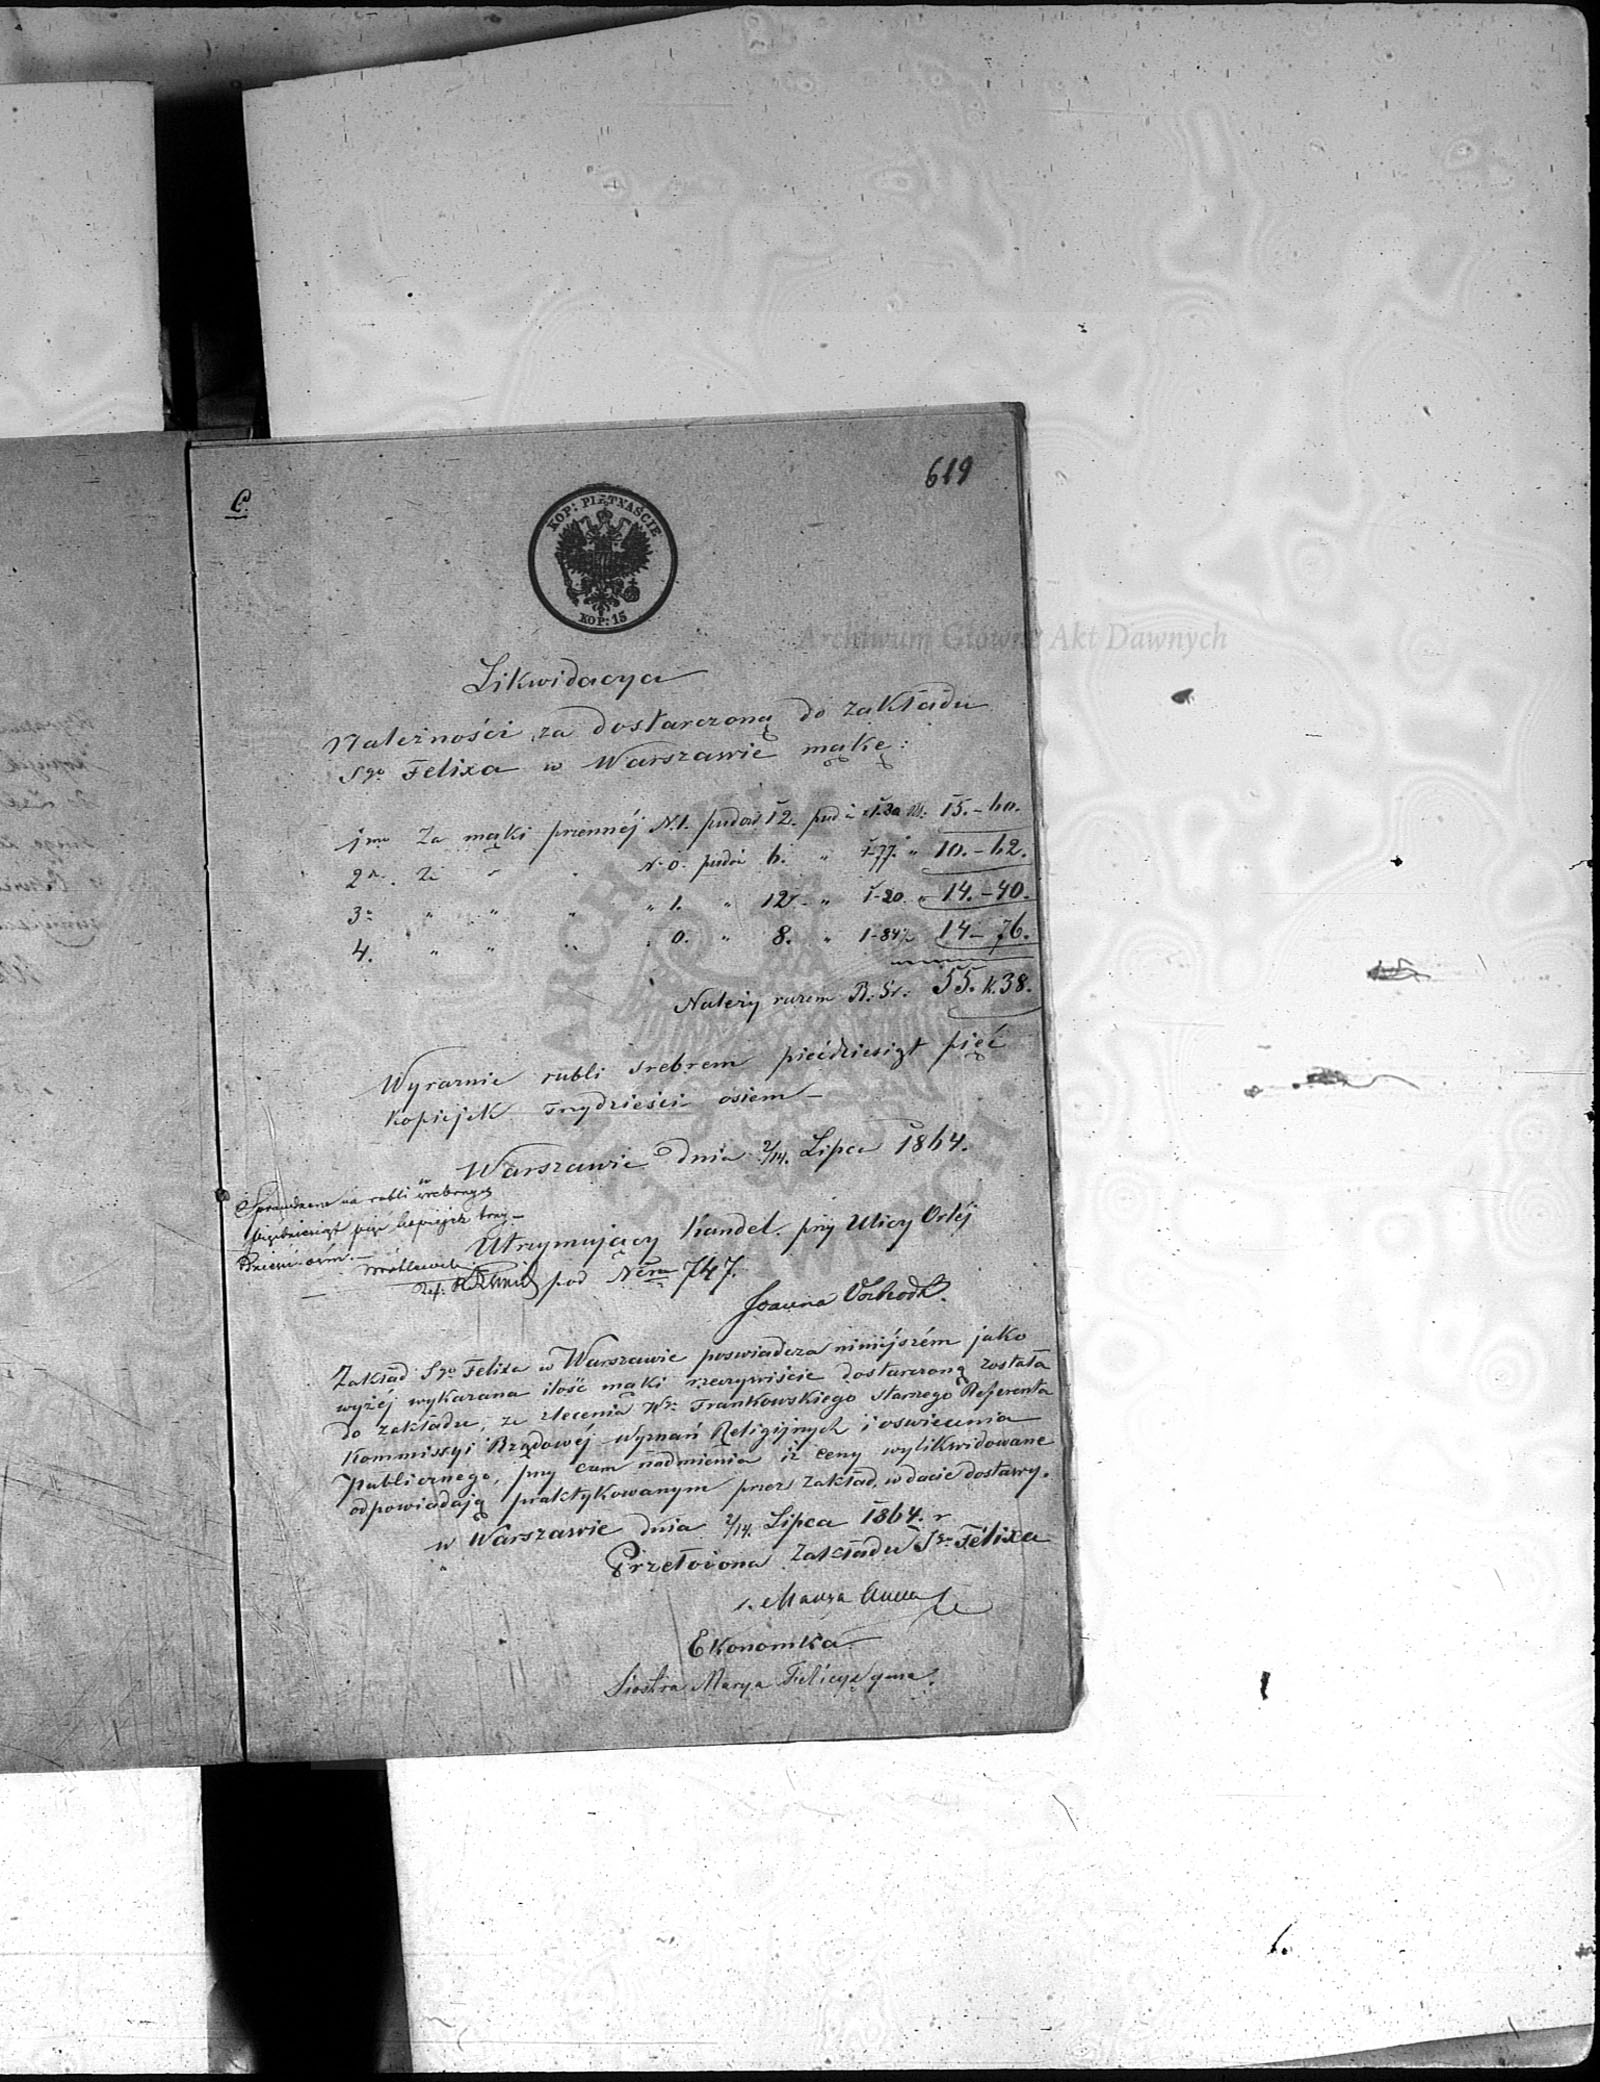 619
C.
KOP: PIĘTNAŚCIE
KOP: 15
Archiwum Główne Akt Dawnych
Likwidacya
Należności za dostarczoną do zakładu
Sgo Felixa w Warszawie mąkę:
1mo Za mąki pszennéj N. 1. pudów 12. pud à 1.30 rs. 15.-60.
2o. Za " " N. 0. pudów 6. " 1-77. " 10.-62.
3o " " " " 1. " 12 - " 1-20. " 14.-40.
4. " " " " 0. " 8. " 1-84½ 14-76.
Należy razem R: Sr: 55. k. 38.
Wyraznie rubli srebrem pięćdziesiąt pięć
kopiejek trzydzieści osiem -
Warszawie dnia 2/14. Lipca 1864.
Sprawdzono na rubli srebrnych
pięćdziesiąt pięć kopiejek trzy-
dzieści ośm.-
Utrzymujący handel przy Ulicy Orlej
pod Nrem 747.
Joanna
Zakład Sgo Felixa w Warszawie poswiadcza niniéjszém jako
wyżéj wykazana ilość mąki rzeczywiście dostarczoną została
do zakładu, ze zlecenia Wo Frankowskiego starszego Referenta
Kommissyi Rządowéj Wyznań Religijnych i oswiecenia
Publicznego, przy czem nadmienia iż ceny wylikwidowane
odpowiadają praktykowanym przez zakład, w dacie dostawy.
w Warszawie dnia 2/14. Lipca 1864. r
Przełożona Zakładu So Félixa
s. Marya Anna
Ekonomka
Siostra Marya